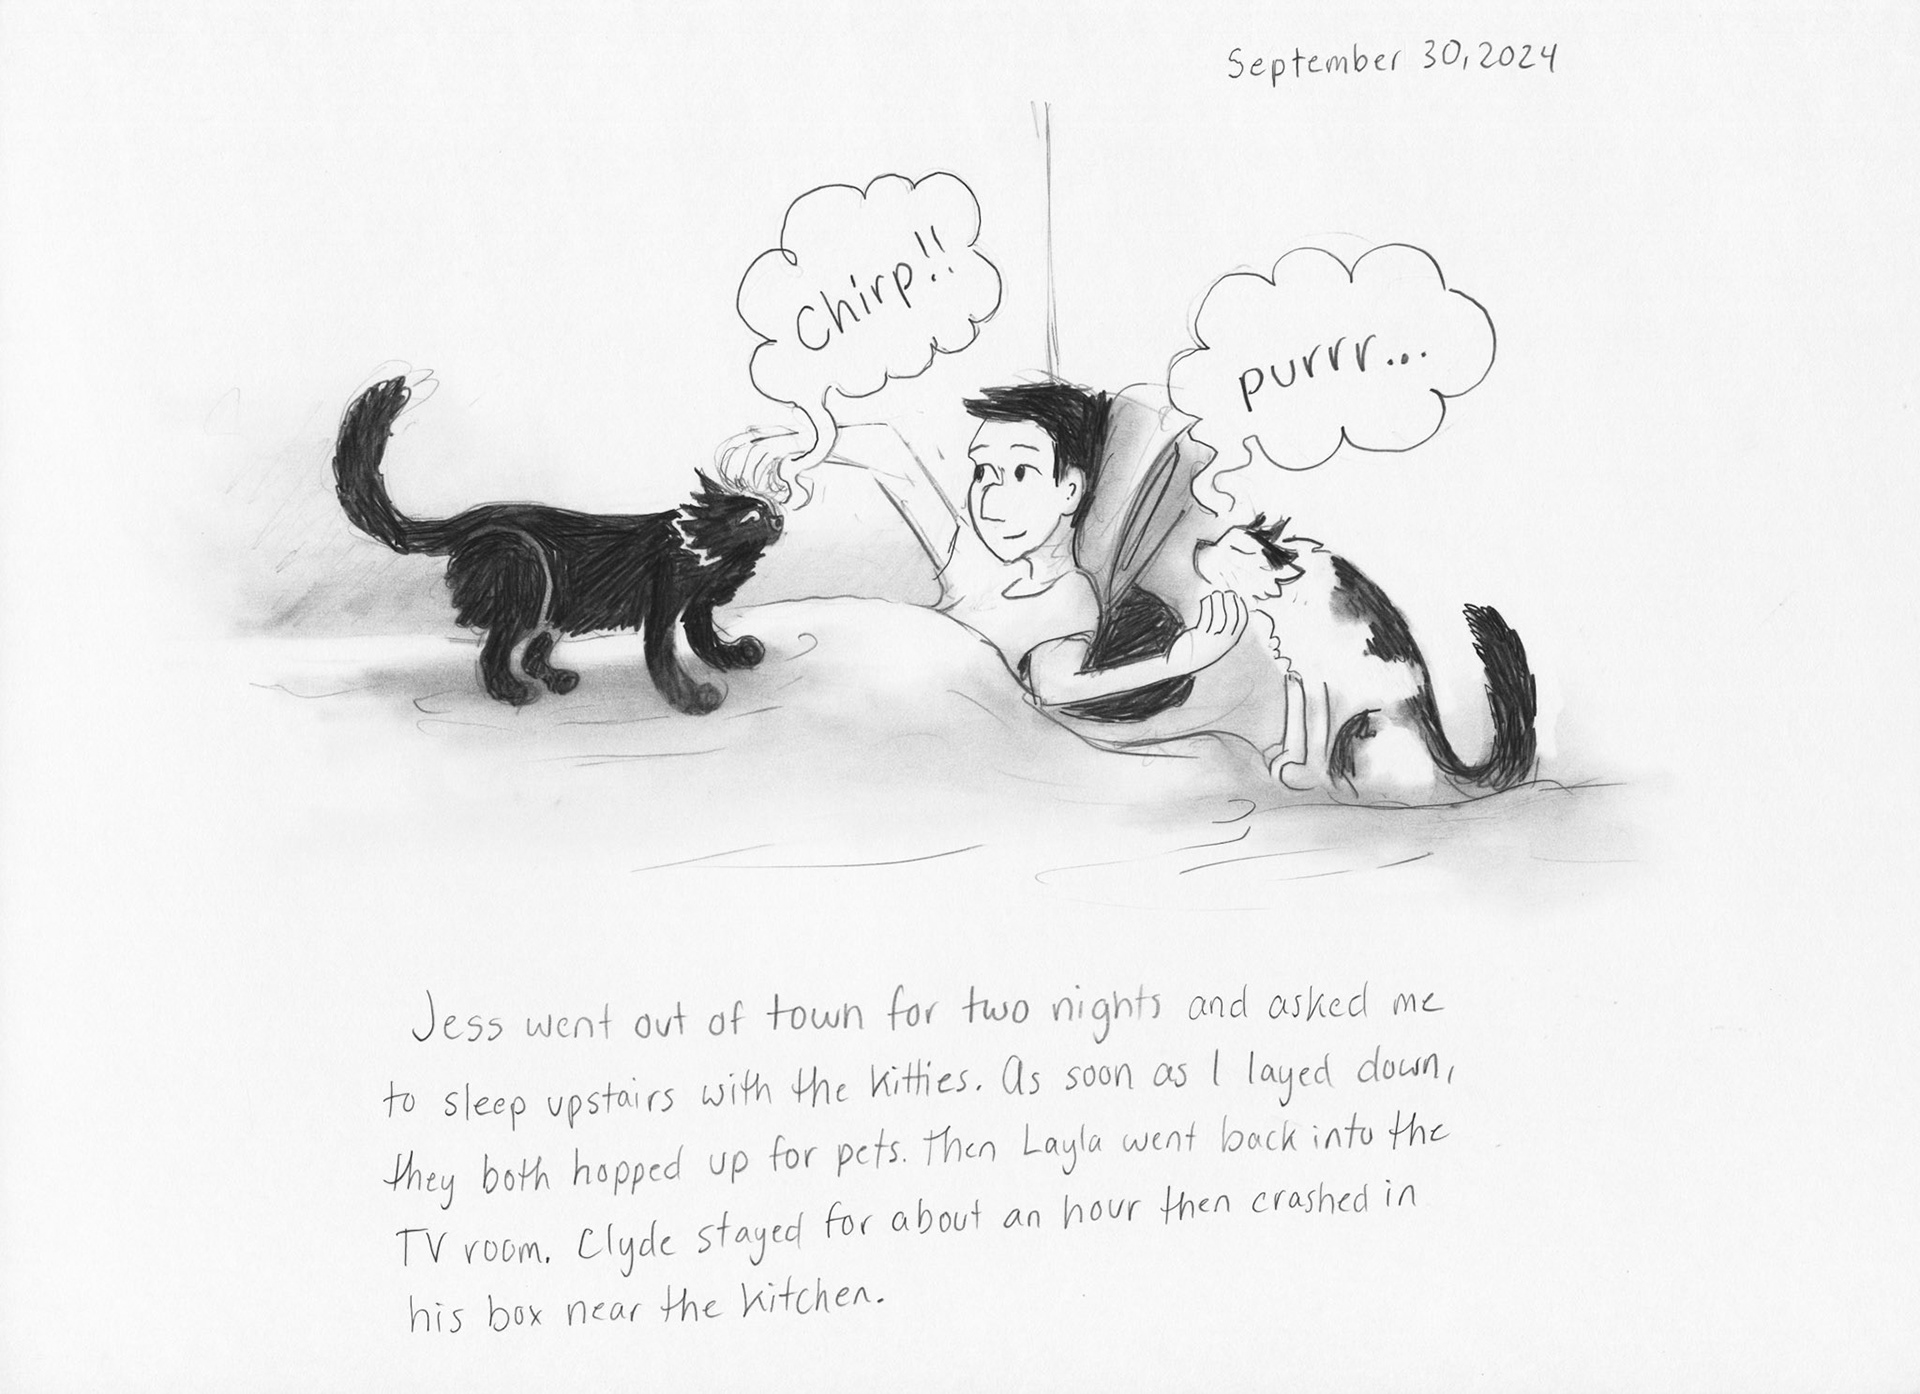 September 30, 2024
Chirp!!
purrr...
Jess went out of town for two nights and asked me
to sleep upstairs with the kitties. As soon as I layed down,
they both hopped up for pets. Then Layla went back into the
TV room. Clyde stayed for about an hour then crashed in
his box near the kitchen.